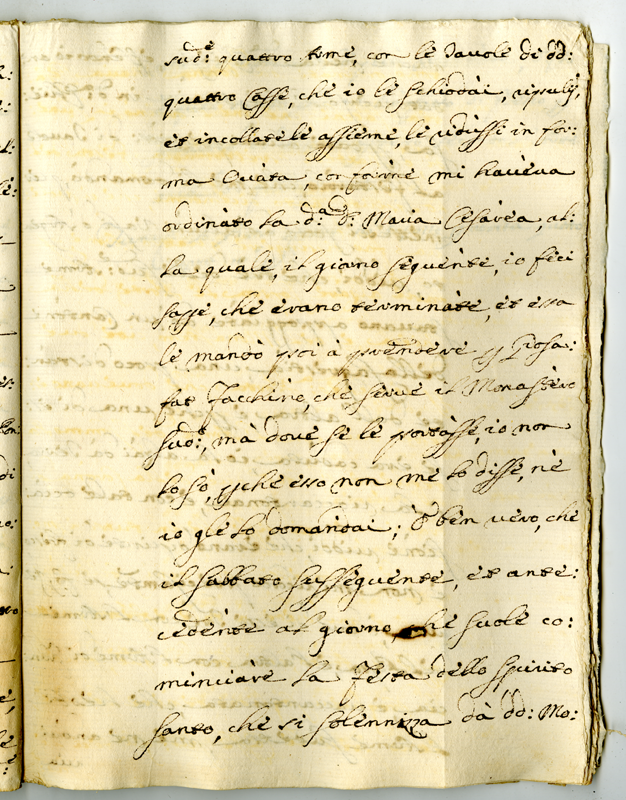 sud:e quattro Arme, con le Tavole di dd:
quattro Casse, che io le schiodai, ripulij,
et incollatele assieme, le ridussi in for:
ma Ovata, conforme mi haveva
ordinato la d:a D: Maria Cesarea, al:
la quale, il giorno seguente, io feci
sapere, che erano terminate, et essa
le mandò poi à prendere p Giosa:
fat Facchino, che serve il Monastero
sud:o, mà dove se le portasse, io non
lo sò, pche esso non me lo disse, nè
io gle lo domandai; È ben vero, che
il sabbato susseguente, et ante:
cedente al giorno, che suole co:
minciare la Festa dello Spirito
Santo, che si solennizza dà dd: Mo: